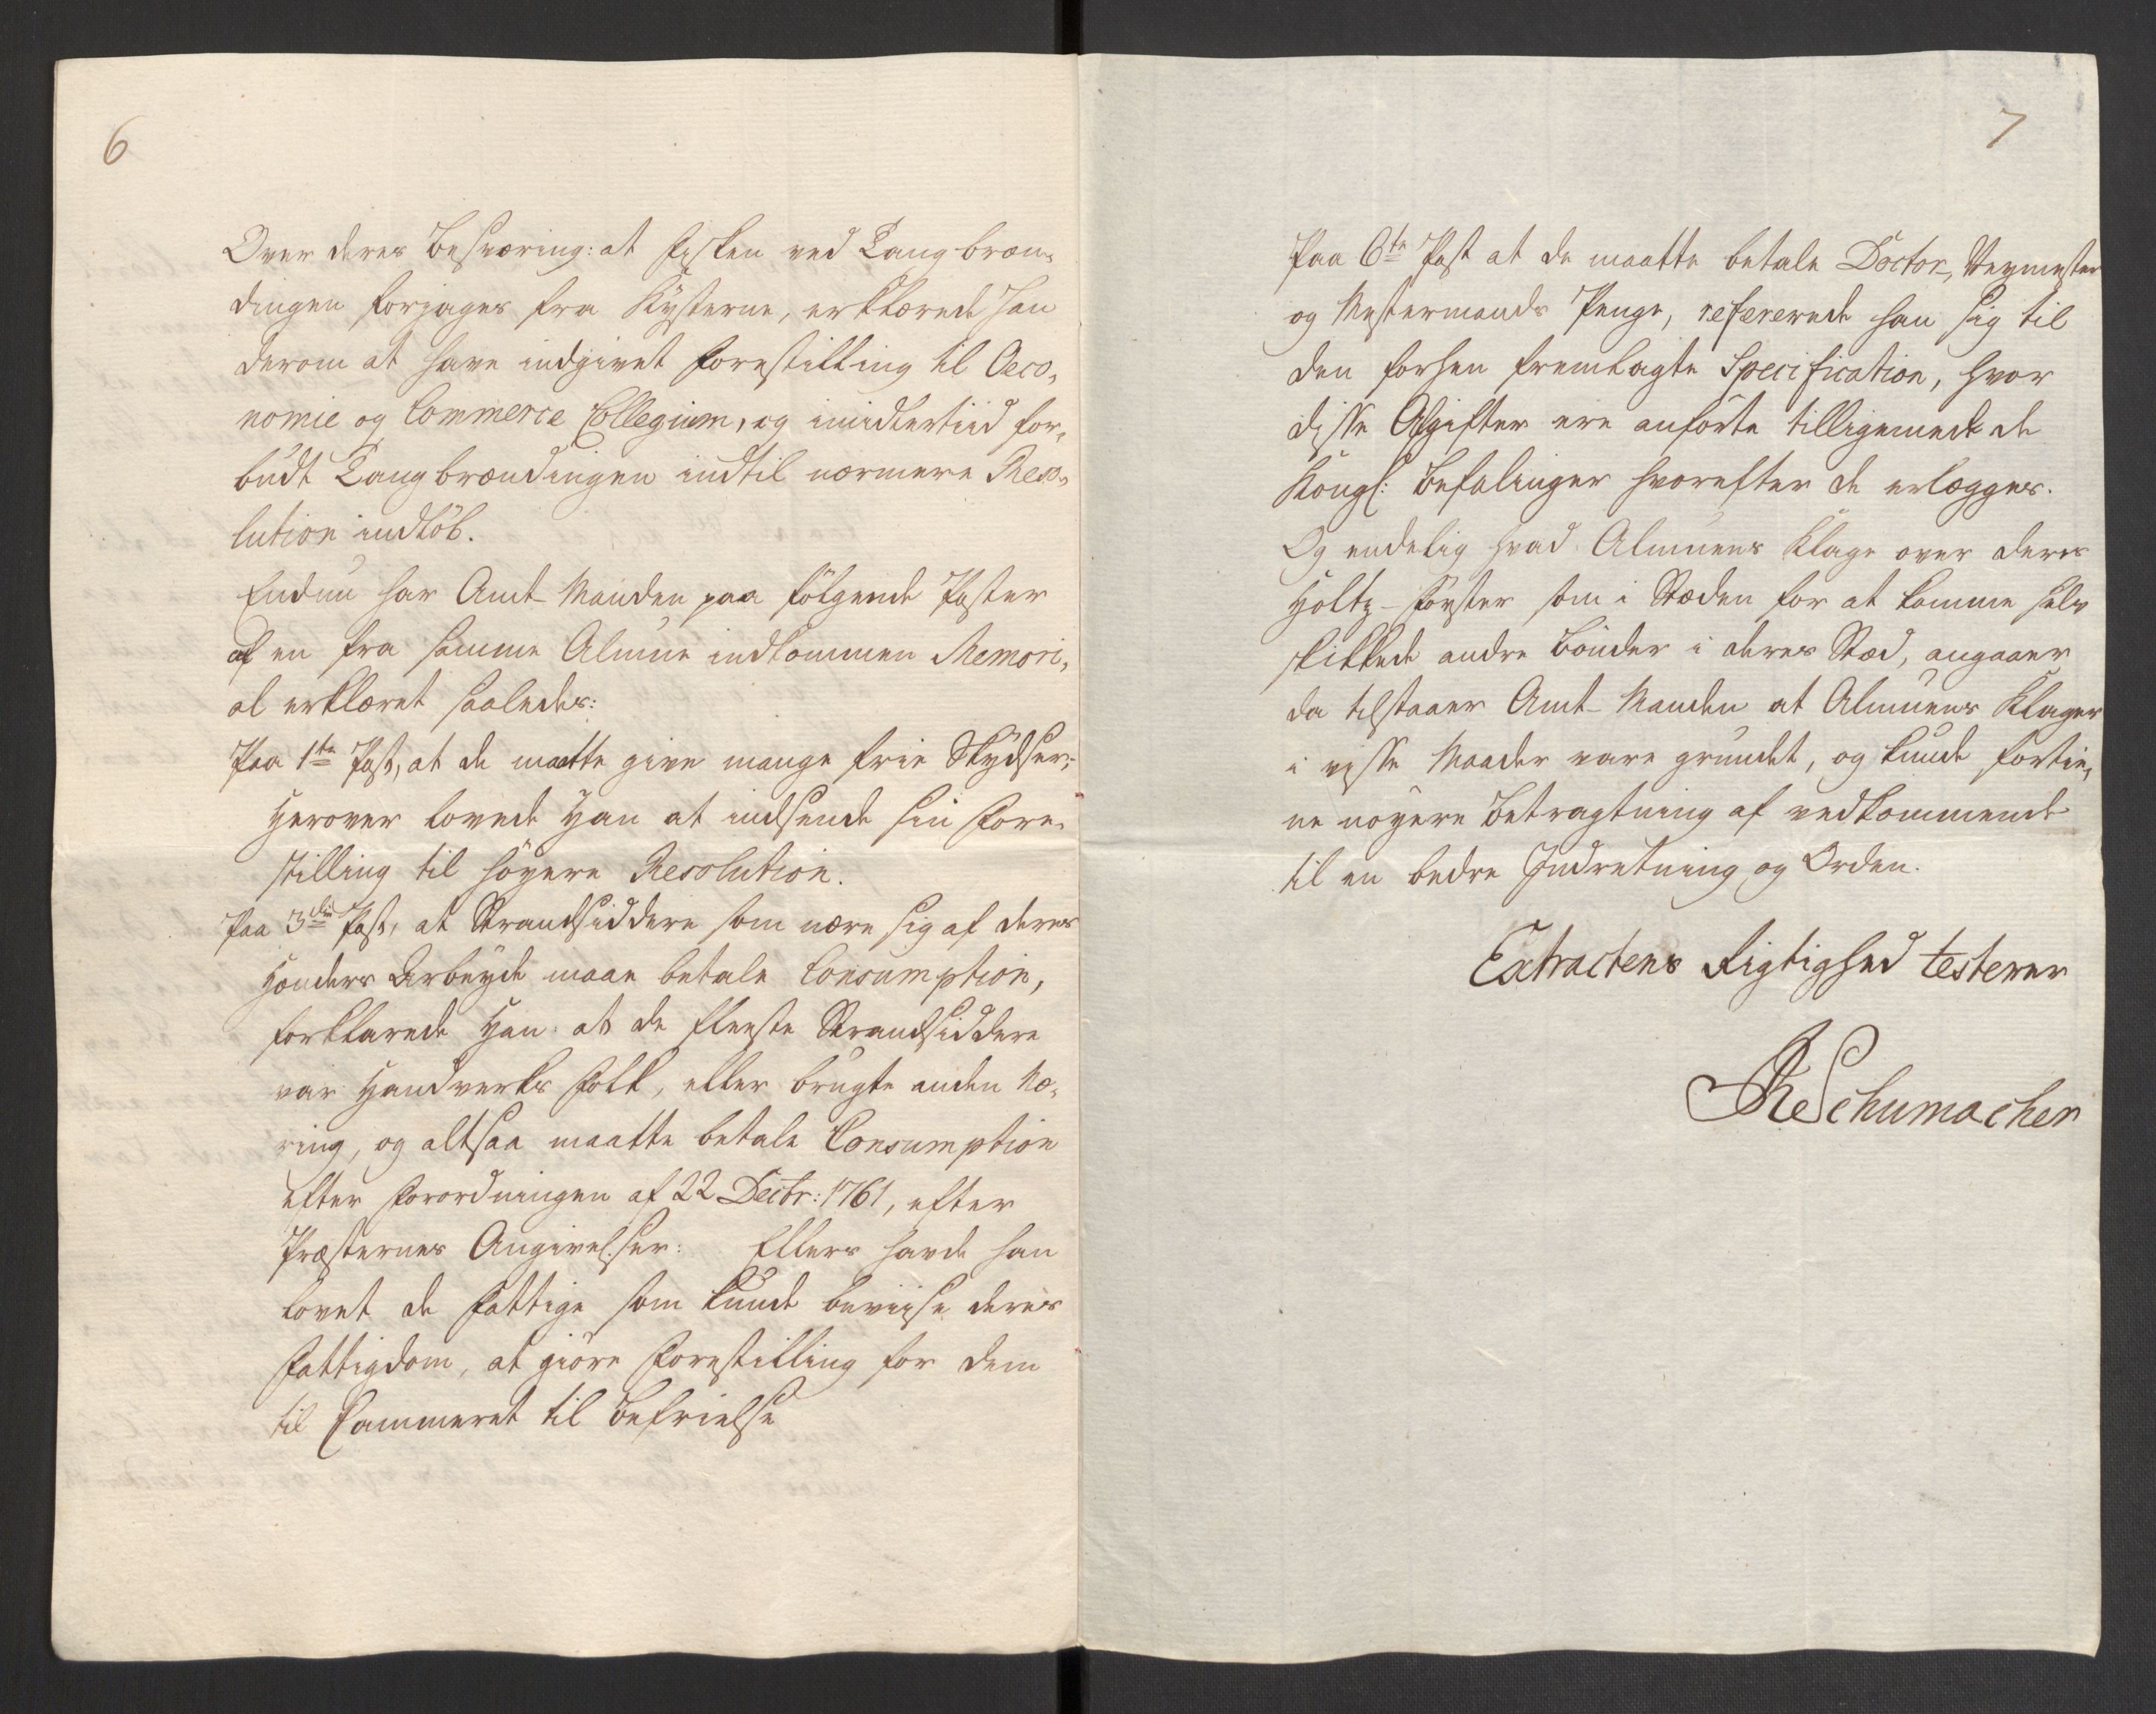 6
Over deres Besværing: at Fisken ved Tangbræn,
dingen forjages fra Kysterne, erklærede han
derom at have indgivet Forestilling til Oeco,
nomie og Commerce Collegium, og imidlertiid for,
budt Tangbrændingen indtil nærmere Reso,
lution indløb.
Endnu har Amt-Manden paa følgende Poster
af en fra samme Almue indkommen Memori,
al erklæret saaledes:
Paa 1te Post, at de maatte give mange frie Skydser;
Herover lovede Han at indsende sin Fore,
stilling til høyere Resolution.
Paa 3die Post, at Strandsiddere som nære sig af deres
Hænders Arbeyde maae betale Consumption,
forklarede Han: at de fleeste Strandsiddere
var Handverks Folk, eller brugte anden Næ,
ring, og altsaa maatte betale Consumption
efter Forordningen af 22 Decbr: 1761, efter
Præsternes Angivelser: Ellers havde han
lovet de Fattige som kunde beviise deres
Fattigdom, at giøre Forestilling for dem
til Cammeret til Befrielse
7
Paa 6te Post at de maatte betale Doctor, Veymester
og Mestermands Penge, refererede han sig til
den forhen fremlagte Specification, hvor
disse Afgifter ere anførte tilligemed de
Kongl: Befalinger hvorefter de erlægges.
Og endelig hvad Almuens Klage over deres
Holtz-Førster som i Stæden for at komme selv
skikkede andre Bønder i deres Stæd, angaaer
da tilstaaer Amt-Manden at Almuens Klager
i visse Maader vare grundet, og kunde fortie,
ne nøyere Betragtning af vedkommende
til en bedre Indretning og Orden.
Extractens Rigtighed testerer
Schumacher